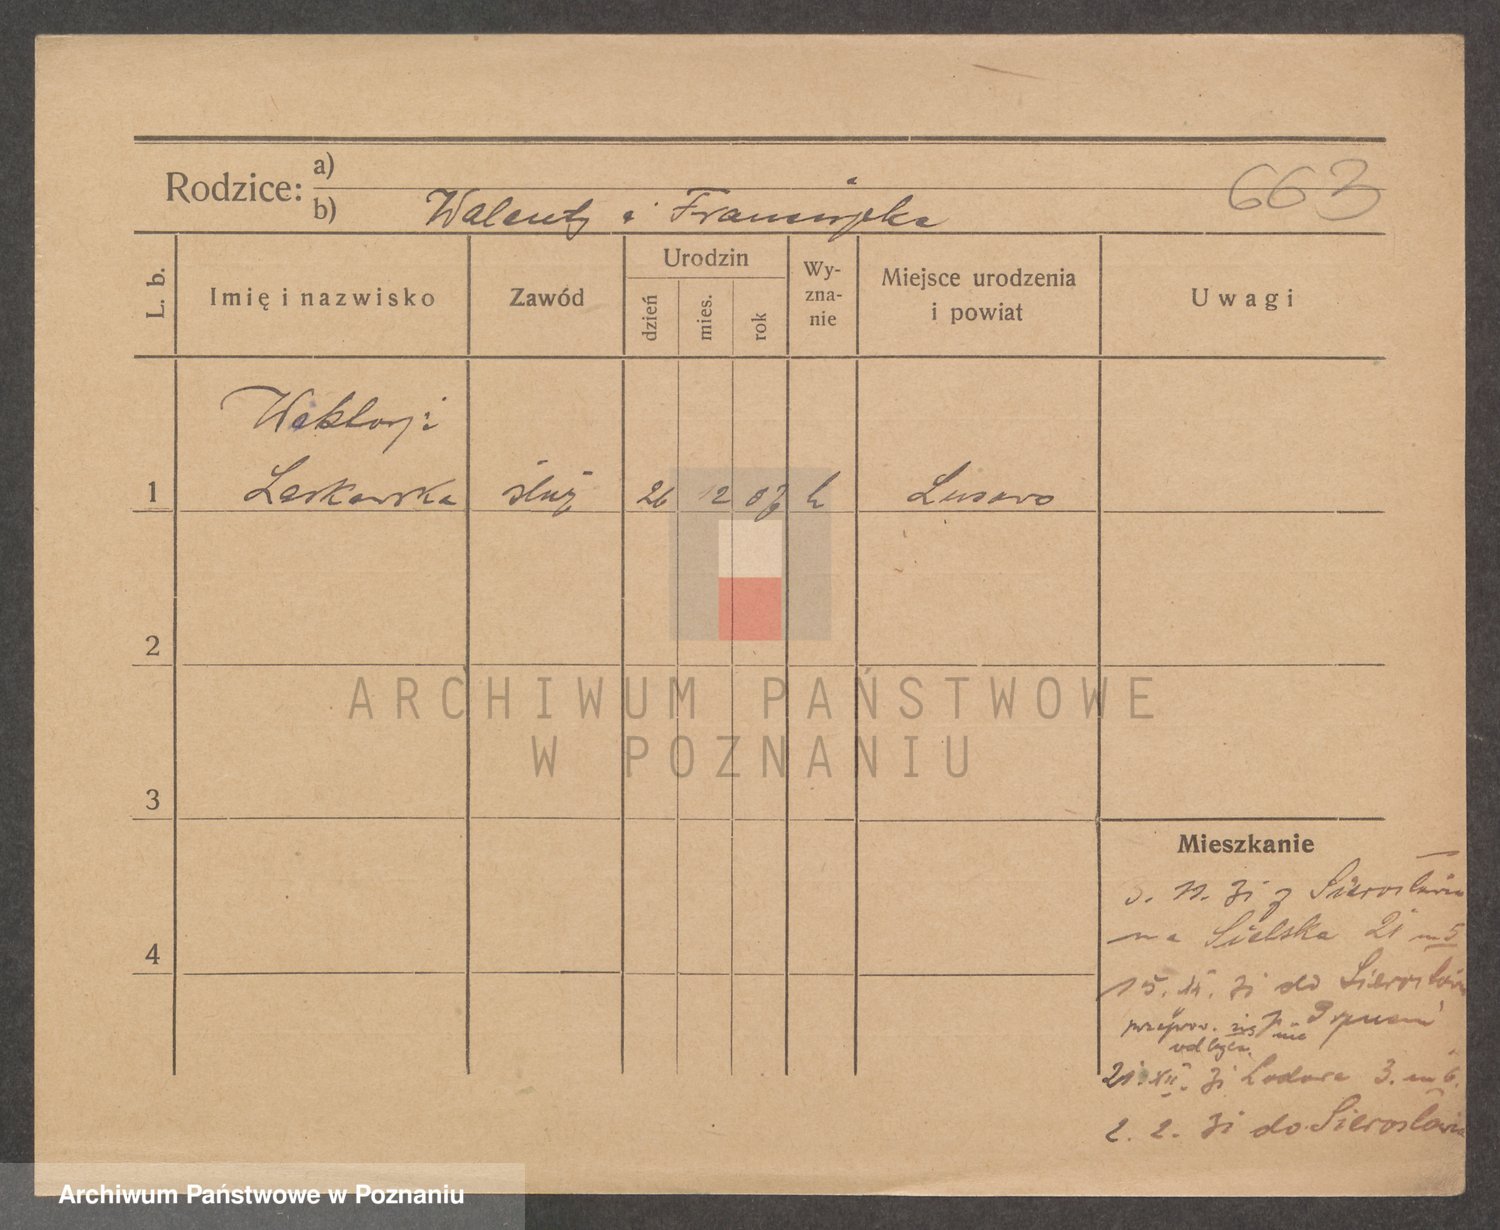 Rodzice:
a)
b) Walenty i Franciszka
663
L. b.
Imię i nazwisko
Zawód
Urodzin
dzień
mies.
rok
Wy-
zna-
nie
Miejsce urodzenia
i powiat
Uwagi
Wiktorja
1 Laskowska służ 26 12 07 k Lusowo
2
ARCHIWUM PAŃSTWOWE
W POZNANIU
3
Mieszkanie
3. 11. 31 z Sierosławia
na Sielska 21 m 5
4
15. 31 do Sierosław
przepr. się nie
odbyła
21. XII. 31 3. m 6.
2. 2. 31 do Sierosławia
Archiwum Państwowe w Poznaniu